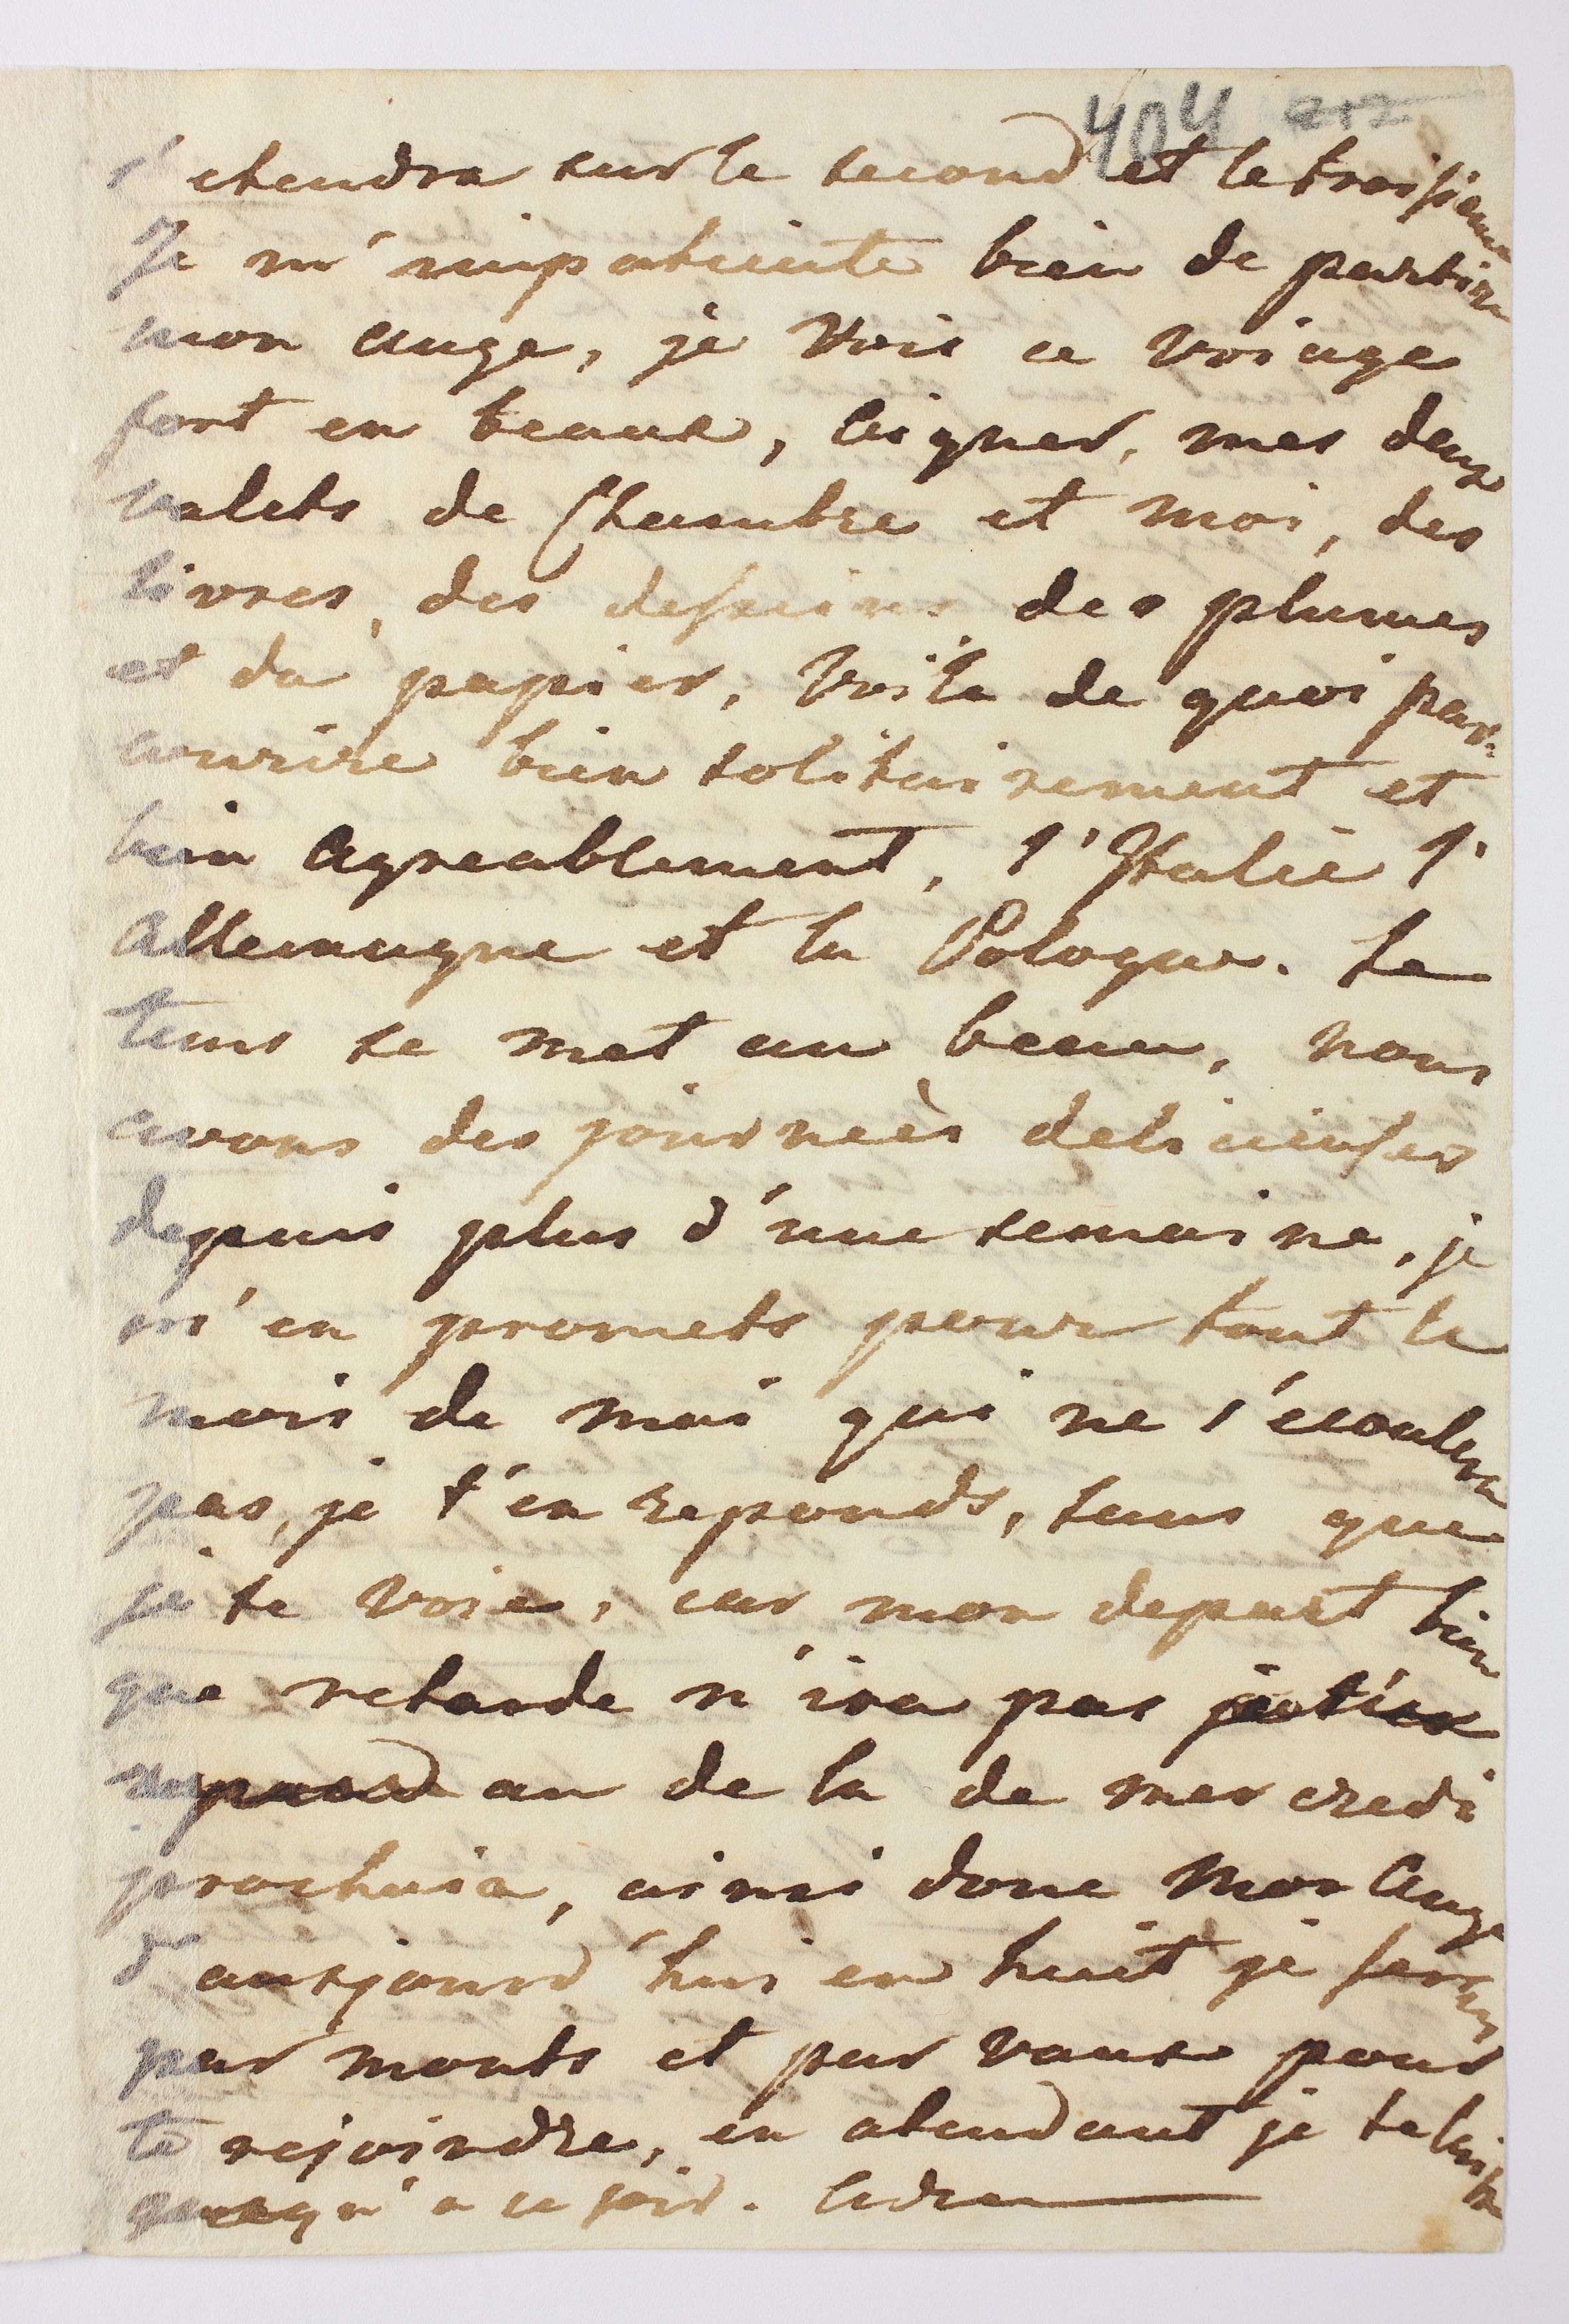 404 212
s'etendra sur le second et le troisieme
Je m'impatiente bien de partir
mon ange, je vois ce voiage
fort en beaux, Aigner, mes deux
valets de Chambre et moi, des
livres, des desseins des plumes
et du papier, voila de quoi par-
courire bien solitairement et
bien agreablement, l'Italie l'
allemagne et la Pologne. Le
tems se met au beau, nous
avons des journeès delicieuses
depuis plus d'une semaine, je
m'en promets pour tout le
mois de mai qui ne s'écoulera
pas, je t'en reponds, sans que
je te voie, car mon depart bien
que retarde n'ira pas je t'en
repond au de la de mercredi
prochain, ainsi donc mon ange
d'aujourd'hui en huit je serai
par monts et par vaux pour
te rejoindre, en atendant je te laisse
jusqu'a ce soir. Adieu